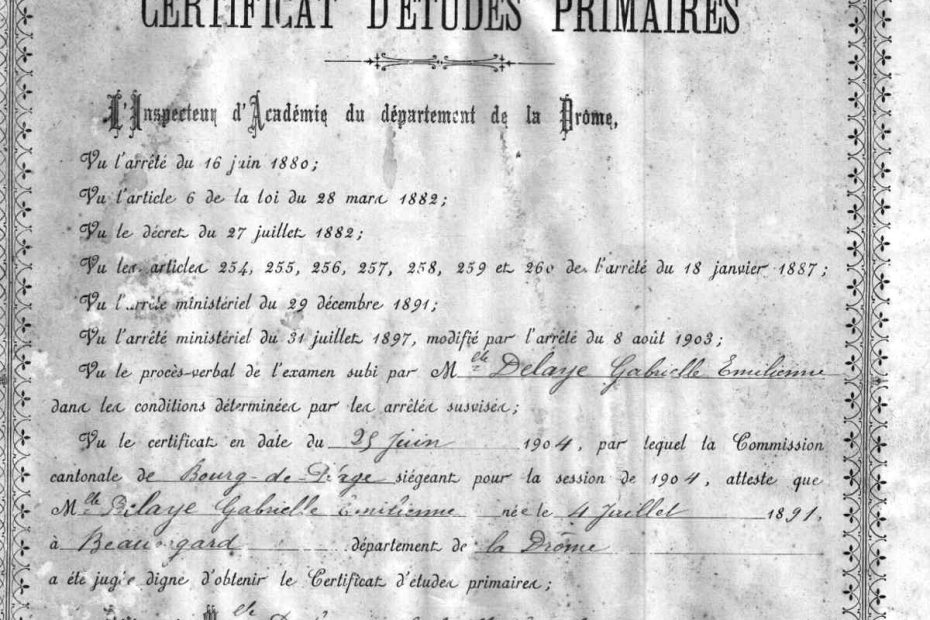 CERTIFICAT D'ÉTUDES PRIMAIRES
L'Inspecteur d'Académie du département de la Drôme,
Vu l'arrêté du 16 juin 1880;
Vu l'article 6 de la loi du 28 mars 1882;
Vu le décret du 27 juillet 1882;
Vu les articles 254, 255, 256, 257, 258, 259 et 260 de l'arrêté du 18 janvier 1887;
Vu l'arrêté ministériel du 29 décembre 1891;
Vu l'arrêté ministériel du 31 juillet 1897, modifié par l'arrêté du 8 août 1903;
Vu le procès-verbal de l'examen subi par Melle Delaye Gabrielle Emilienne
dans les conditions déterminées par les arrêtés susvisés;
Vu le certificat en date du 25 Juin 1904, par lequel la Commission
cantonale de Bourg-de-Péage siégeant pour la session de 1904, atteste que
Melle Delaye Gabrielle Emilienne née le 4 Juillet 1891,
à Beauregard département de la Drôme
a été jugée digne d'obtenir le Certificat d'études primaires;